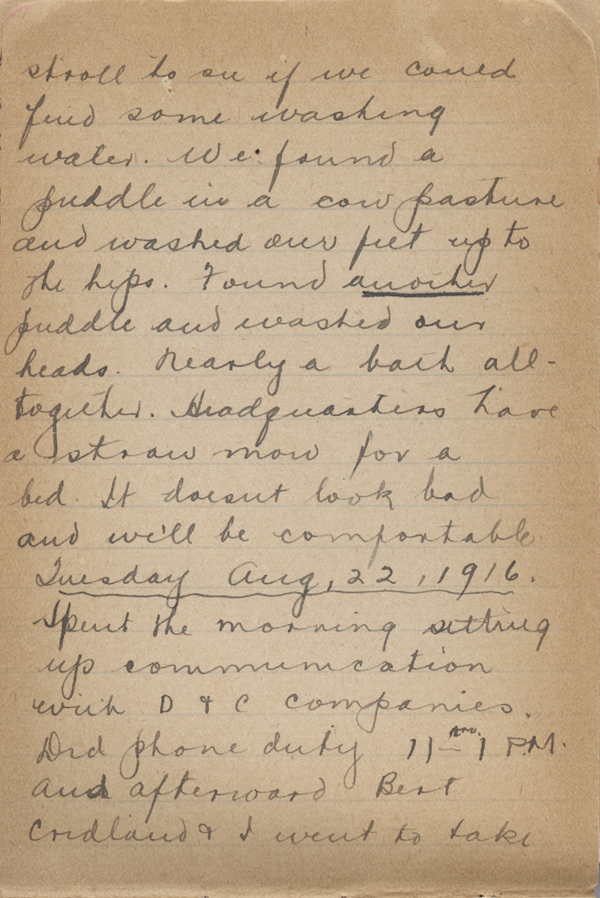 stroll to see if we could
find some washing
water. We found a
puddle in a cow pasture
and washed our feet up to
the hips. Found another
puddle and washed our
heads. Nearly a bath all-
together. Headquarters have
a straw mow for a
bed. It doesnt look bad
and will be comfortable
Tuesday Aug, 22, 1916.
Spent the morning setting
up communication
with D & C companies.
Did phone duty 11 - 1 P.M.
and afterward Bert
Cridland & I went to take